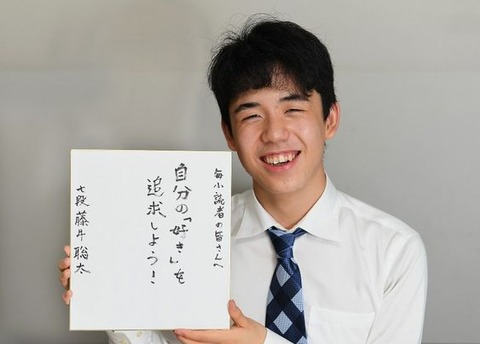 毎小読者の皆さんへ
自分の「好き」を
追求しよう!
七段 藤井聡太